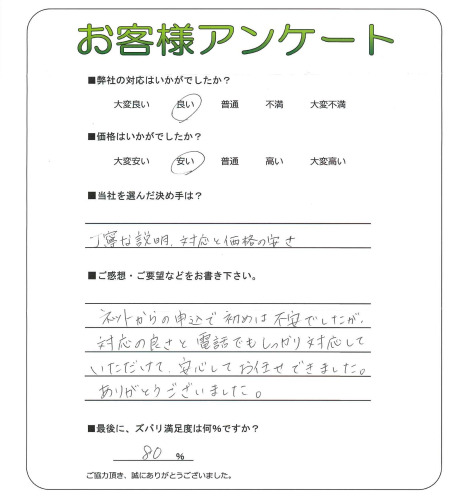 お客様アンケート
■弊社の対応はいかがでしたか？
大変良い 良い 普通 不満 大変不満
■価格はいかがでしたか？
大変安い 安い 普通 高い 大変高い
■当社を選んだ決め手は？
丁寧な説明、対応と価格の安さ
■ご感想・ご要望などをお書き下さい。
ネットからの申込で初めは不安でしたが、
対応の良さと電話でもしっかり対応して
いただけて、安心してお任せできました。
ありがとうございました。
■最後に、ズバリ満足度は何%ですか？
80 %
ご協力頂き、誠にありがとうございました。